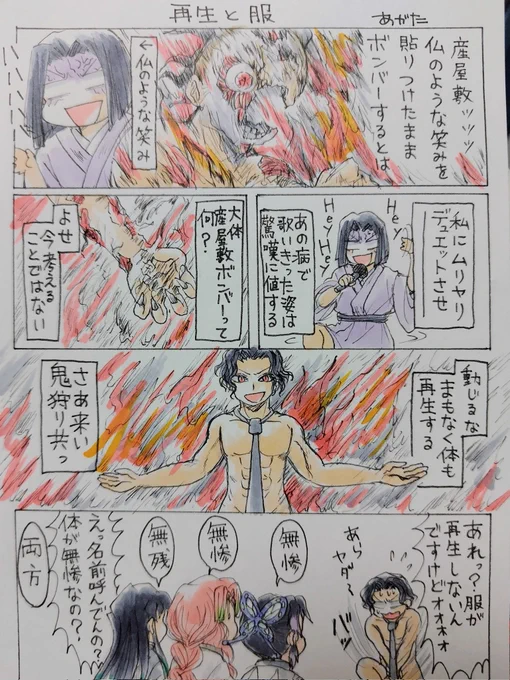 再生と服
あがた
産屋敷ッッッ
仏のような笑みを
貼りつけたまま
ボンバーするとは
←仏のような笑み
ハハハハハ
私にムリヤリ
デュエットさせ
Hey
Hey
HeyHey
あの病で
歌いきった姿は
驚嘆に値する
大体
産屋敷ボンバーって
何?
よせ
今考える
ことではない
動じるな
まもなく体も
再生する
さあ来い
鬼狩り共っ
あれっ?服が
再生しないん
ですけどォォォォ
あら
ヤダ~
バッ
無惨
無惨
無残
えっ名前呼んでんの?
体が無惨なの?
両方